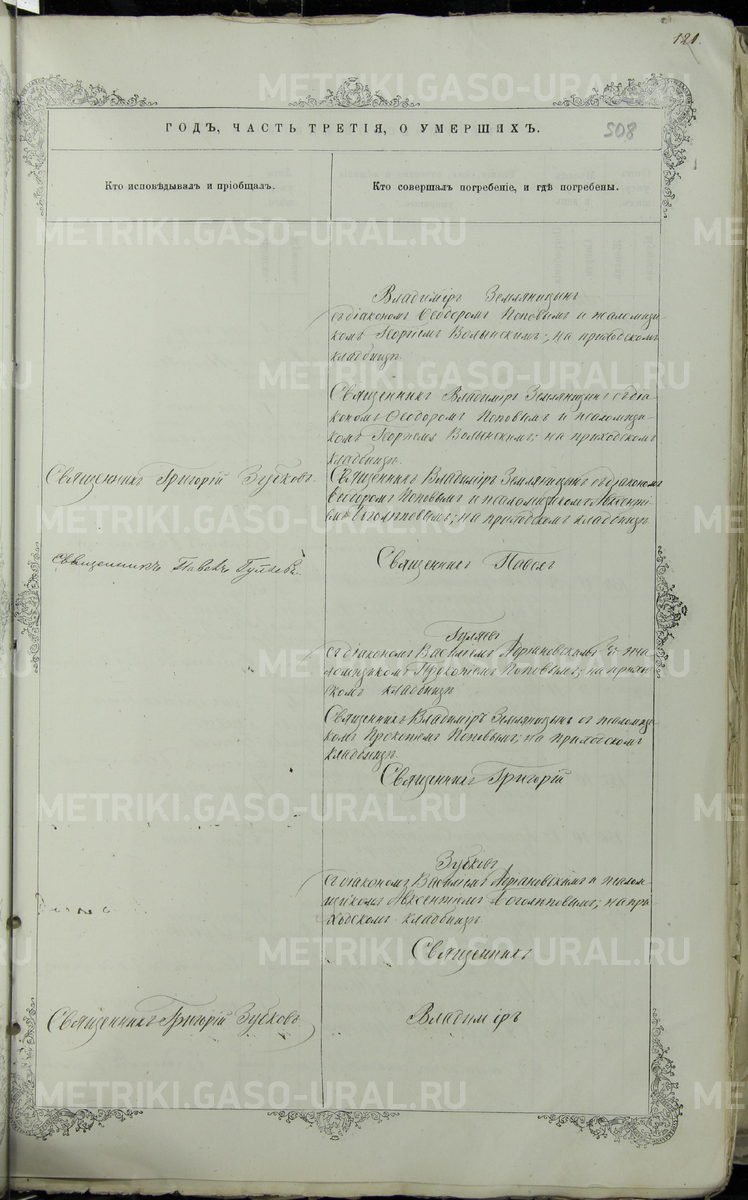 121.
ГОДЪ, ЧАСТЬ ТРЕТІЯ, О УМЕРШИХЪ.
508
Кто исповѣдывалъ и пріобщалъ.
Кто совершалъ погребеніе, и гдѣ погребены.
Владиміръ Земляницынъ
съ діакономъ Ѳеодоромъ Поповымъ и псаломщи-
комъ Георгіемъ Волынскимъ; на приходскомъ
кладбищѣ.
Священникъ Владиміръ Земляницынъ съ діа-
кономъ Ѳеодоромъ Поповымъ и псаломщи-
комъ Георгіемъ Волынскимъ; на приходскомъ
кладбищѣ.
Священникъ Григорій Зубковъ.
Священникъ Владиміръ Земляницынъ съ діакономъ
Ѳеодоромъ Поповымъ и псаломщикомъ Авксенті-
емъ Боголѣповымъ; на приходскомъ кладбищѣ
Священникъ Павелъ Гуляевъ.
Священникъ Павелъ
Гуляевъ
съ діакономъ Василіемъ и пса-
ломщикомъ Прокопіемъ Поповымъ; на приход-
скомъ кладбищѣ
Священникъ Владиміръ Земляницынъ съ псаломщи-
комъ Прокопіемъ Поповымъ; на приходскомъ
кладбищѣ.
Священникъ Григорій
Зубковъ
съ діакономъ Василіемъ и псалом-
щикомъ Авксентіемъ Боголѣповымъ; на при-
ходскомъ кладбищѣ.
Священникъ
Священникъ Григорій Зубковъ
Владиміръ
METRIKI.GASO-URAL.RU